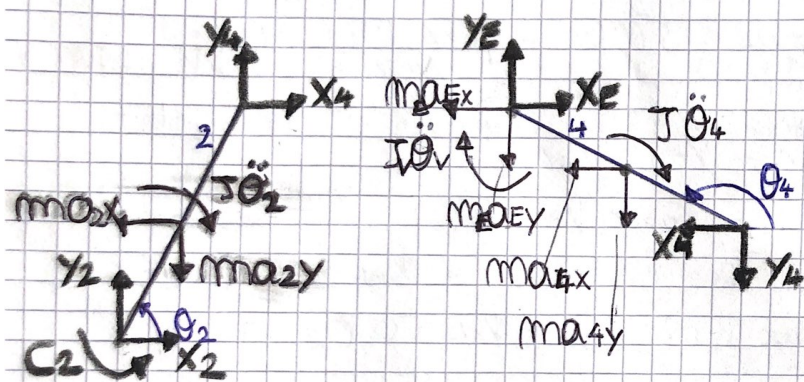 Y4
X4
2
Jθ̈2
ma2x
ma2y
Y2
θ2
X2
C2
YE
XE
maEx
4
Jθ̈4
Jvθ̈v
θ4
mEaEy
X4
Y4
ma4x
ma4y